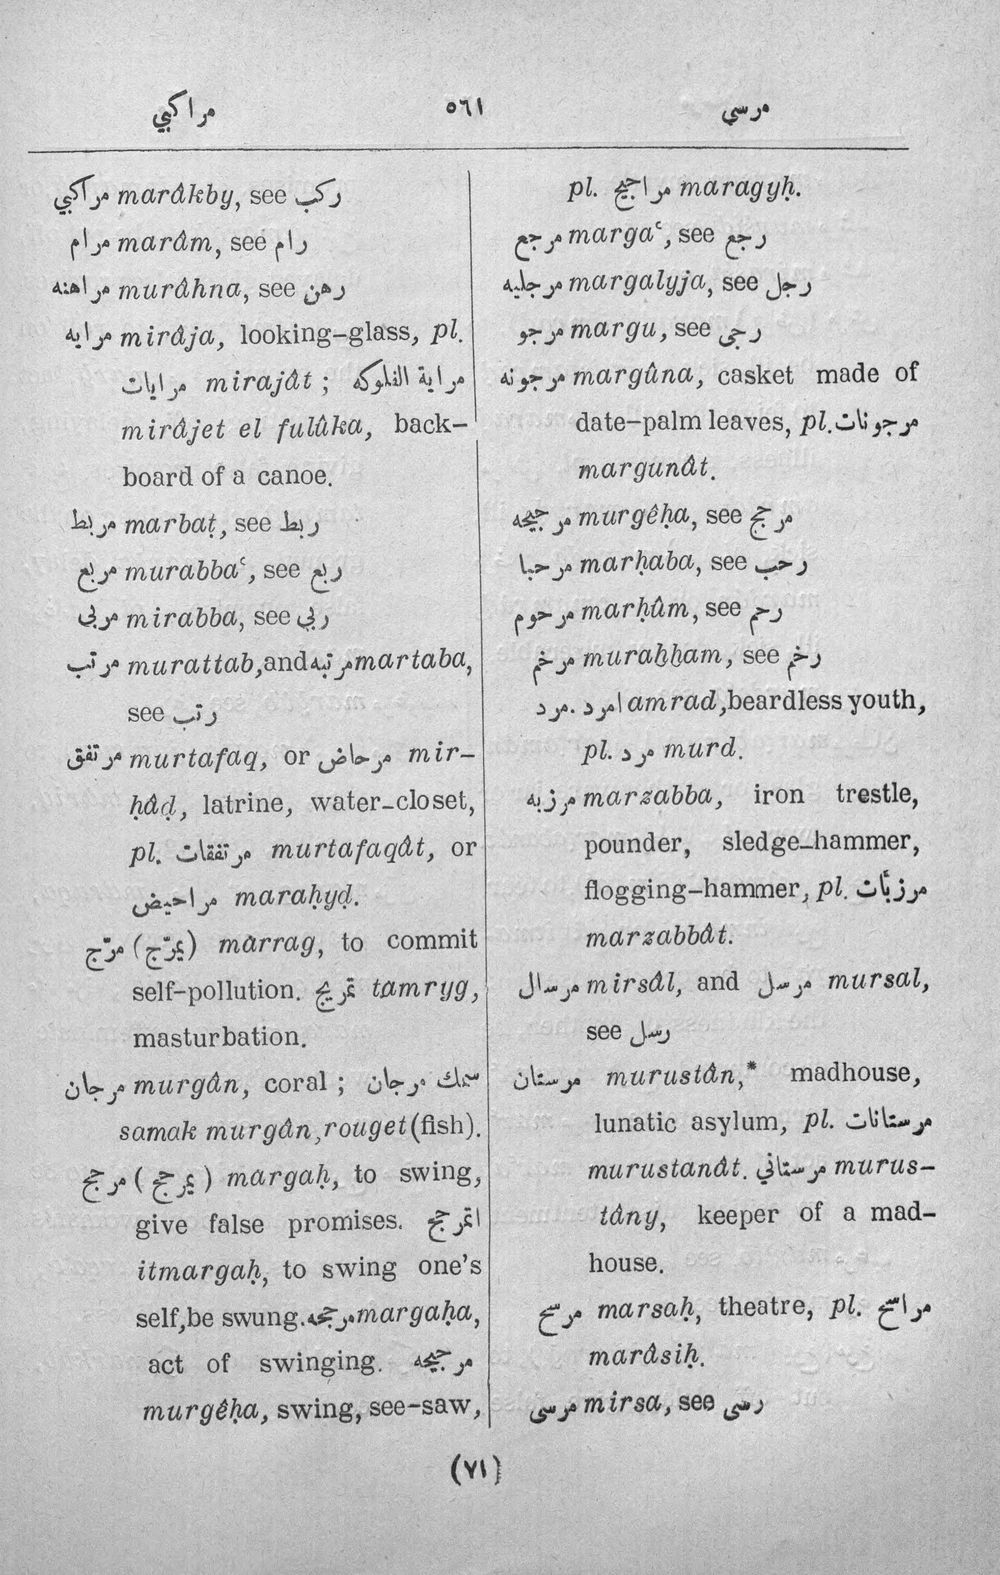 مراكبي ٥٦١ مرسي
مراكبي marâkby, see ركب
مرام marâm, see رام
مراهنه murâhna, see رهن
مرايه mirâja, looking-glass, pl.
مرايات mirajât ; مراية الفلوكه
mirâjet el fulûka, back-
board of a canoe.
مربط marbaṭ, see ربط
مربع murabbaʿ, see ربع
مربى mirabba, see ربي
مرتب murattab, and مرتبه martaba,
see رتب
مرتفق murtafaq, or مرحاض mir-
ḥâḍ, latrine, water-closet,
pl. مرتفقات murtafaqât, or
مراحيض maraḥyḍ.
مرّج (يمرّج) marrag, to commit
self-pollution. تمريج tamryg,
masturbation.
مرجان murgân, coral ; سمك مرجان
samak murgân, rouget (fish).
مرجح (يمرجح) margaḥ, to swing,
give false promises. اتمرجح
itmargaḥ, to swing one's
self, be swung. مرجحه margaḥa,
act of swinging. مرجيحه
murgêḥa, swing, see-saw,
pl. مراجيح maragyḥ.
مرجع margaʿ, see رجع
مرجليه margalyja, see رجل
مرجو margu, see رجى
مرجونه margûna, casket made of
date-palm leaves, pl. مرجونات
margunât.
مرجيحه murgêḥa, see مرجح
مرحبا marḥaba, see رحب
مرحوم marḥûm, see رحم
مرخم muraḫḫam, see رخم
مرد. امرد amrad, beardless youth,
pl. مرد murd.
مرزبه marzabba, iron trestle,
pounder, sledge-hammer,
flogging-hammer, pl. مرزبّات
marzabbât.
مرسال mirsâl, and مرسل mursal,
see رسل
مرستان murustân,* madhouse,
lunatic asylum, pl. مرستانات
murustanât. مرستاني murus-
tâny, keeper of a mad-
house.
مرسح marsaḥ, theatre, pl. مراسح
marâsiḥ.
مرسى mirsa, see رسى
(٧١)